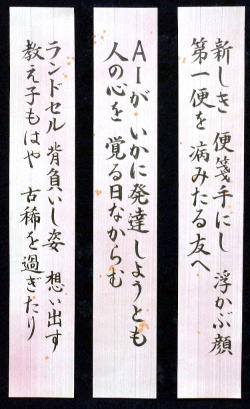 新しき 便箋手にし 浮かぶ顔
第一便を 病みたる友へ
AIが いかに発達しようとも
人の心を 覚る日なからむ
ランドセル 背負いし姿 想い出す
教え子もはや 古稀を過ぎたり